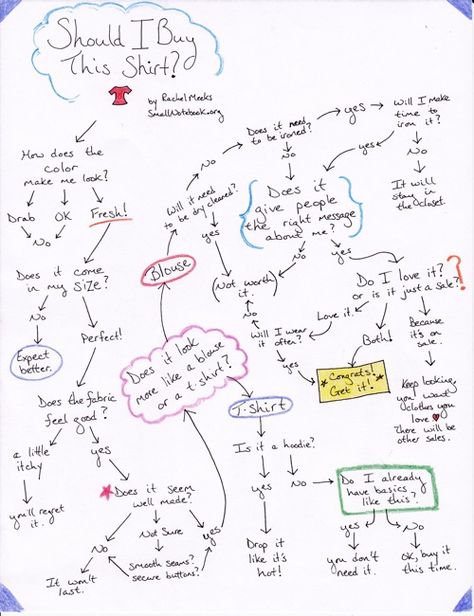 Should I Buy
This Shirt?
by Rachel Meeks
SmallNotebook.org
How does the
color
make me look?
Drab
OK
Fresh!
No
Does it come
in my size?
No
Perfect!
Expect
better.
Does the fabric
feel good?
a little
itchy
yes
you'll regret
it.
Does it seem
well made?
No
Not Sure
yes
It won't
last.
smooth seams?
secure buttons?
Does it look
more like a blouse
or a t.shirt?
Blouse
Will it need
to be dry cleaned?
No
yes
Does it need
to be ironed?
yes
No
Will I make
time to
iron it?
yes
No
It will
stay in
the closet.
Does it
give people
the right message
about me?
No
yes
(Not worth
it.)
Do I love it?
or is it just a sale?
?
Love it.
Both!
Because
it's on
sale.
Will I wear
it often?
No
yes
Congrats!
Get it!
Keep looking,
you want
clothes you
love
There will be
other sales.
T-Shirt
Is it a hoodie?
yes
No
Drop it
like it's
hot!
Do I already
have basics
like this?
yes
No
you don't
need it.
OK, buy it
this time.